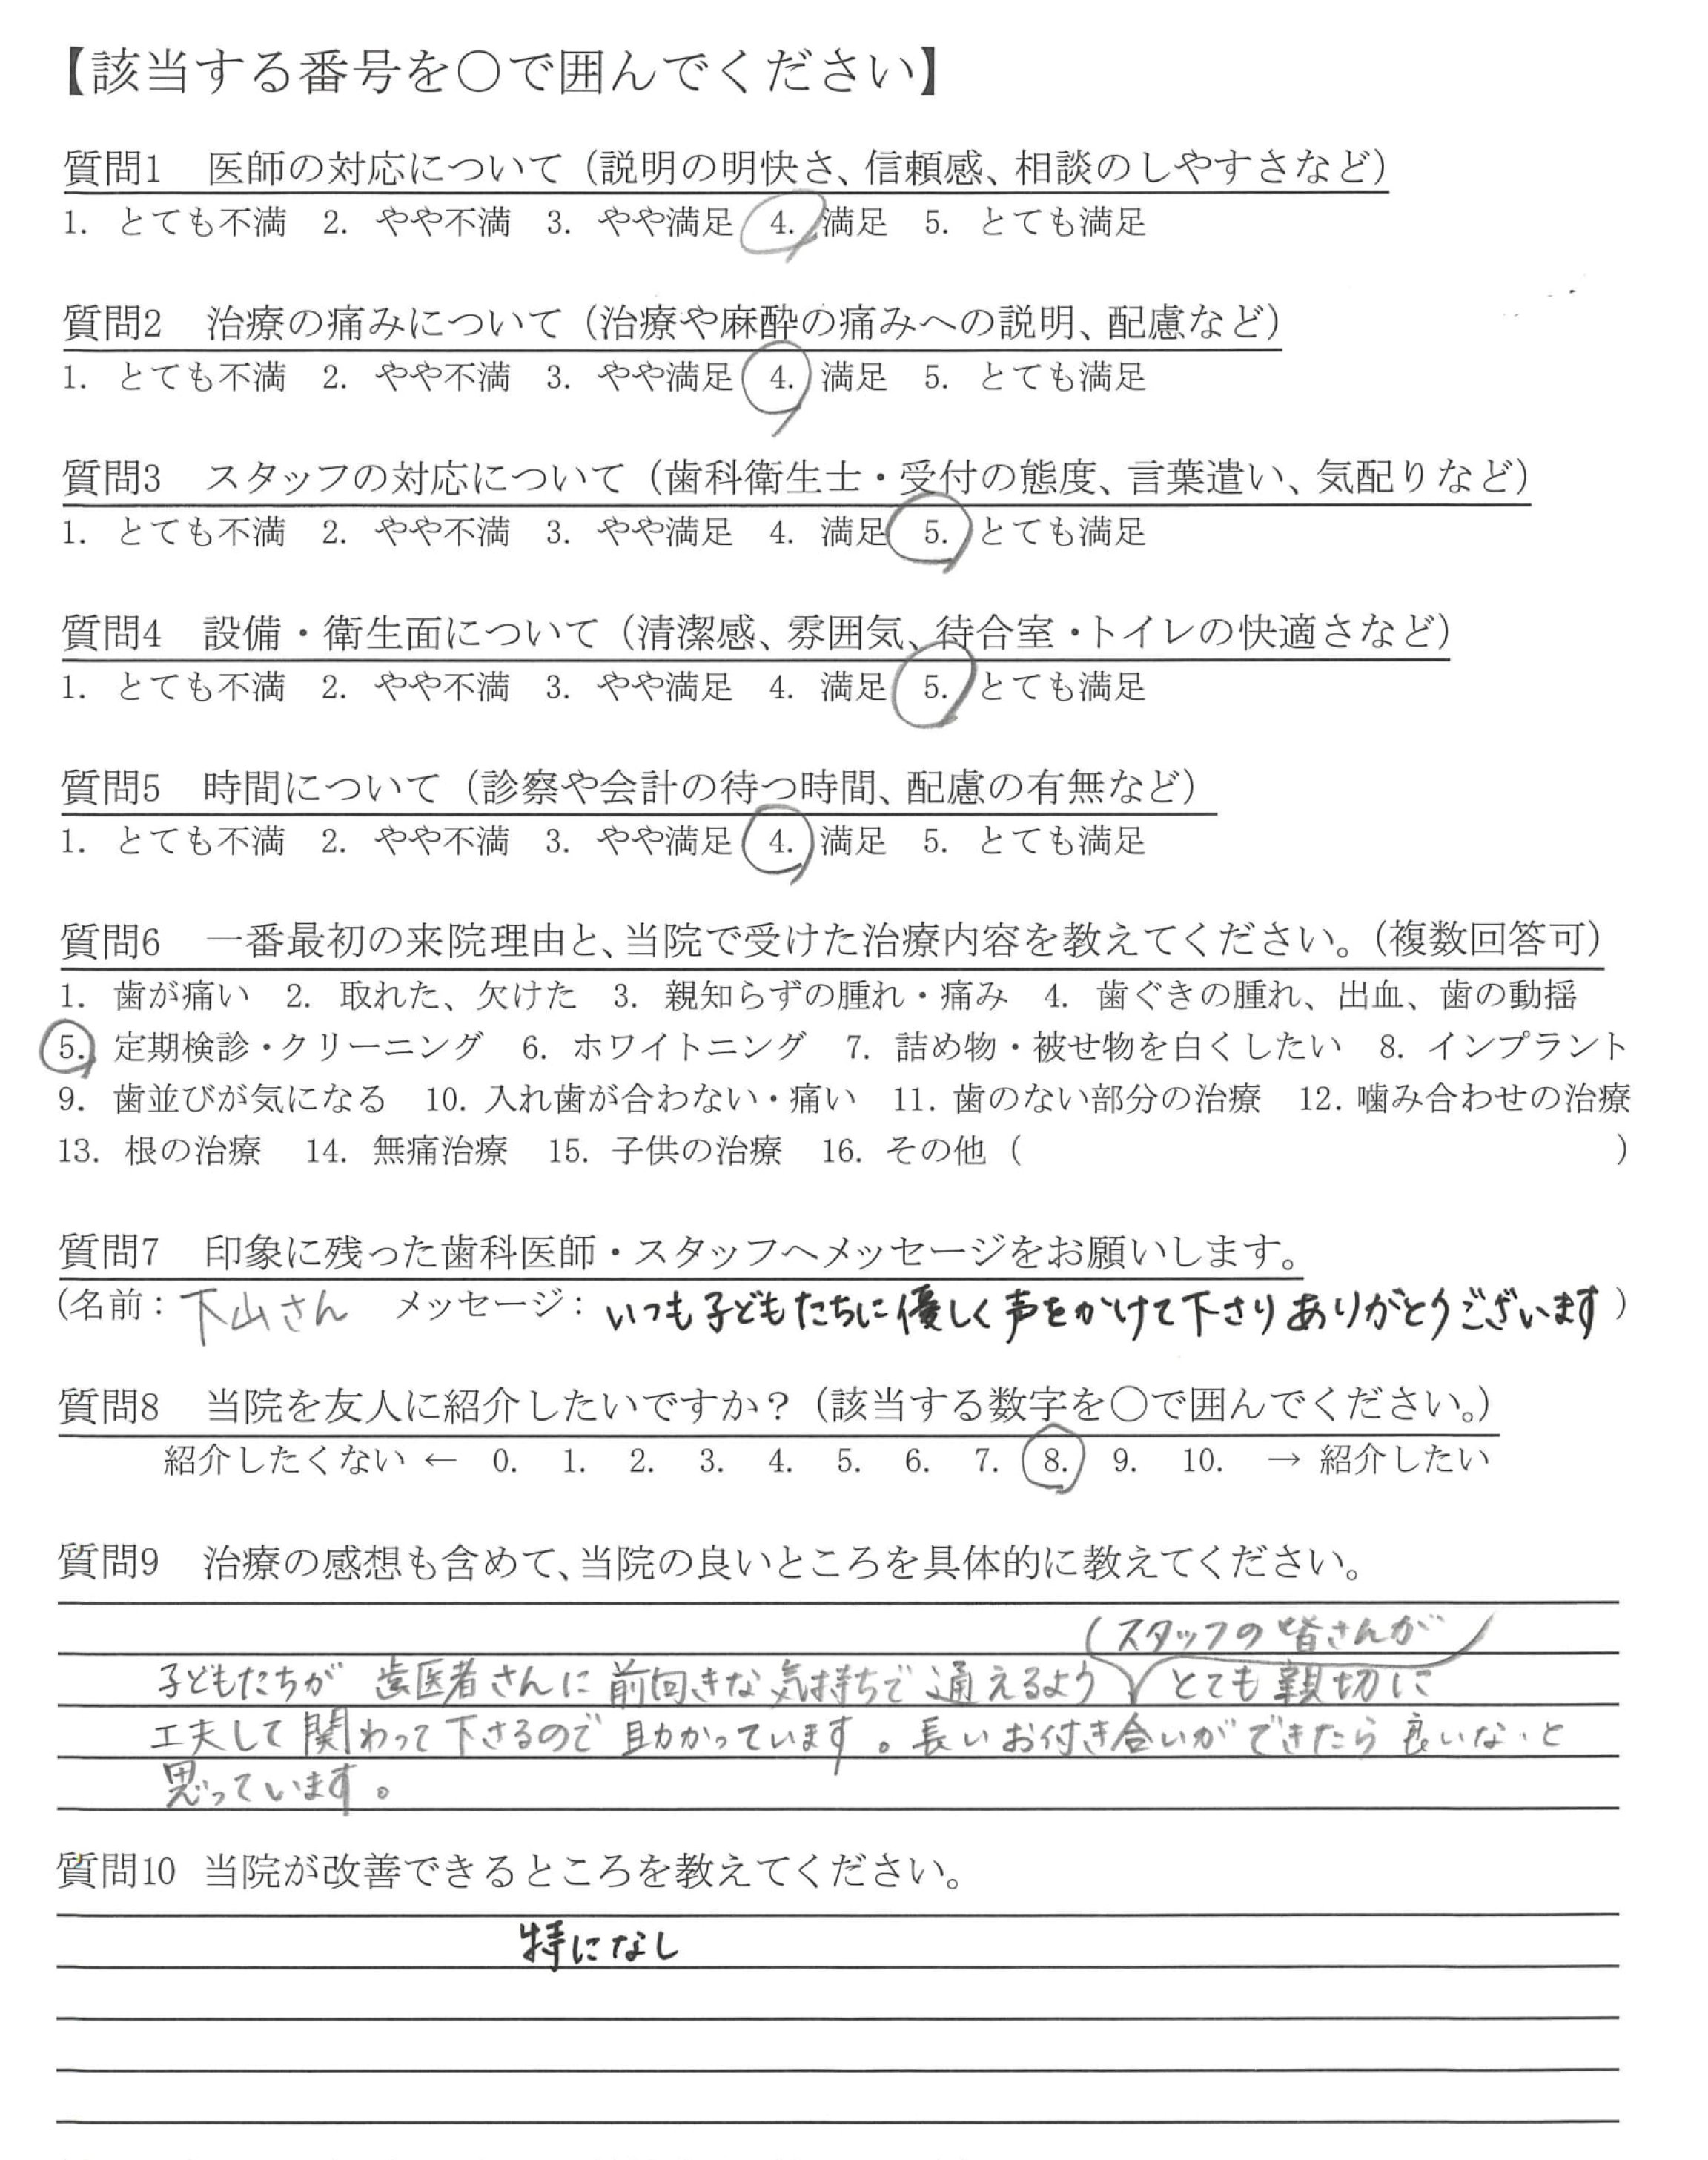 【該当する番号を〇で囲んでください】
質問1　医師の対応について（説明の明快さ、信頼感、相談のしやすさなど）
1. とても不満　2. やや不満　3. やや満足　4. 満足　5. とても満足
質問2　治療の痛みについて（治療や麻酔の痛みへの説明、配慮など）
1. とても不満　2. やや不満　3. やや満足　4. 満足　5. とても満足
質問3　スタッフの対応について（歯科衛生士・受付の態度、言葉遣い、気配りなど）
1. とても不満　2. やや不満　3. やや満足　4. 満足　5. とても満足
質問4　設備・衛生面について（清潔感、雰囲気、待合室・トイレの快適さなど）
1. とても不満　2. やや不満　3. やや満足　4. 満足　5. とても満足
質問5　時間について（診察や会計の待つ時間、配慮の有無など）
1. とても不満　2. やや不満　3. やや満足　4. 満足　5. とても満足
質問6　一番最初の来院理由と、当院で受けた治療内容を教えてください。（複数回答可）
1. 歯が痛い　2. 取れた、欠けた　3. 親知らずの腫れ・痛み　4. 歯ぐきの腫れ、出血、歯の動揺
5. 定期検診・クリーニング　6. ホワイトニング　7. 詰め物・被せ物を白くしたい　8. インプラント
9. 歯並びが気になる　10. 入れ歯が合わない・痛い　11. 歯のない部分の治療　12. 噛み合わせの治療
13. 根の治療　14. 無痛治療　15. 子供の治療　16. その他（　　　）
質問7　印象に残った歯科医師・スタッフへメッセージをお願いします。
（名前：下山さん　メッセージ：いつも子どもたちに優しく声をかけて下さりありがとうございます）
質問8　当院を友人に紹介したいですか？（該当する数字を〇で囲んでください。）
紹介したくない ← 0. 1. 2. 3. 4. 5. 6. 7. 8. 9. 10. → 紹介したい
質問9　治療の感想も含めて、当院の良いところを具体的に教えてください。
スタッフの皆さんが
子どもたちが 歯医者さんに 前向きな気持ちで 通えるよう とても親切に
工夫して関わって下さるので 助かっています。長いお付き合いができたら良いな、と
思っています。
質問10　当院が改善できるところを教えてください。
特になし